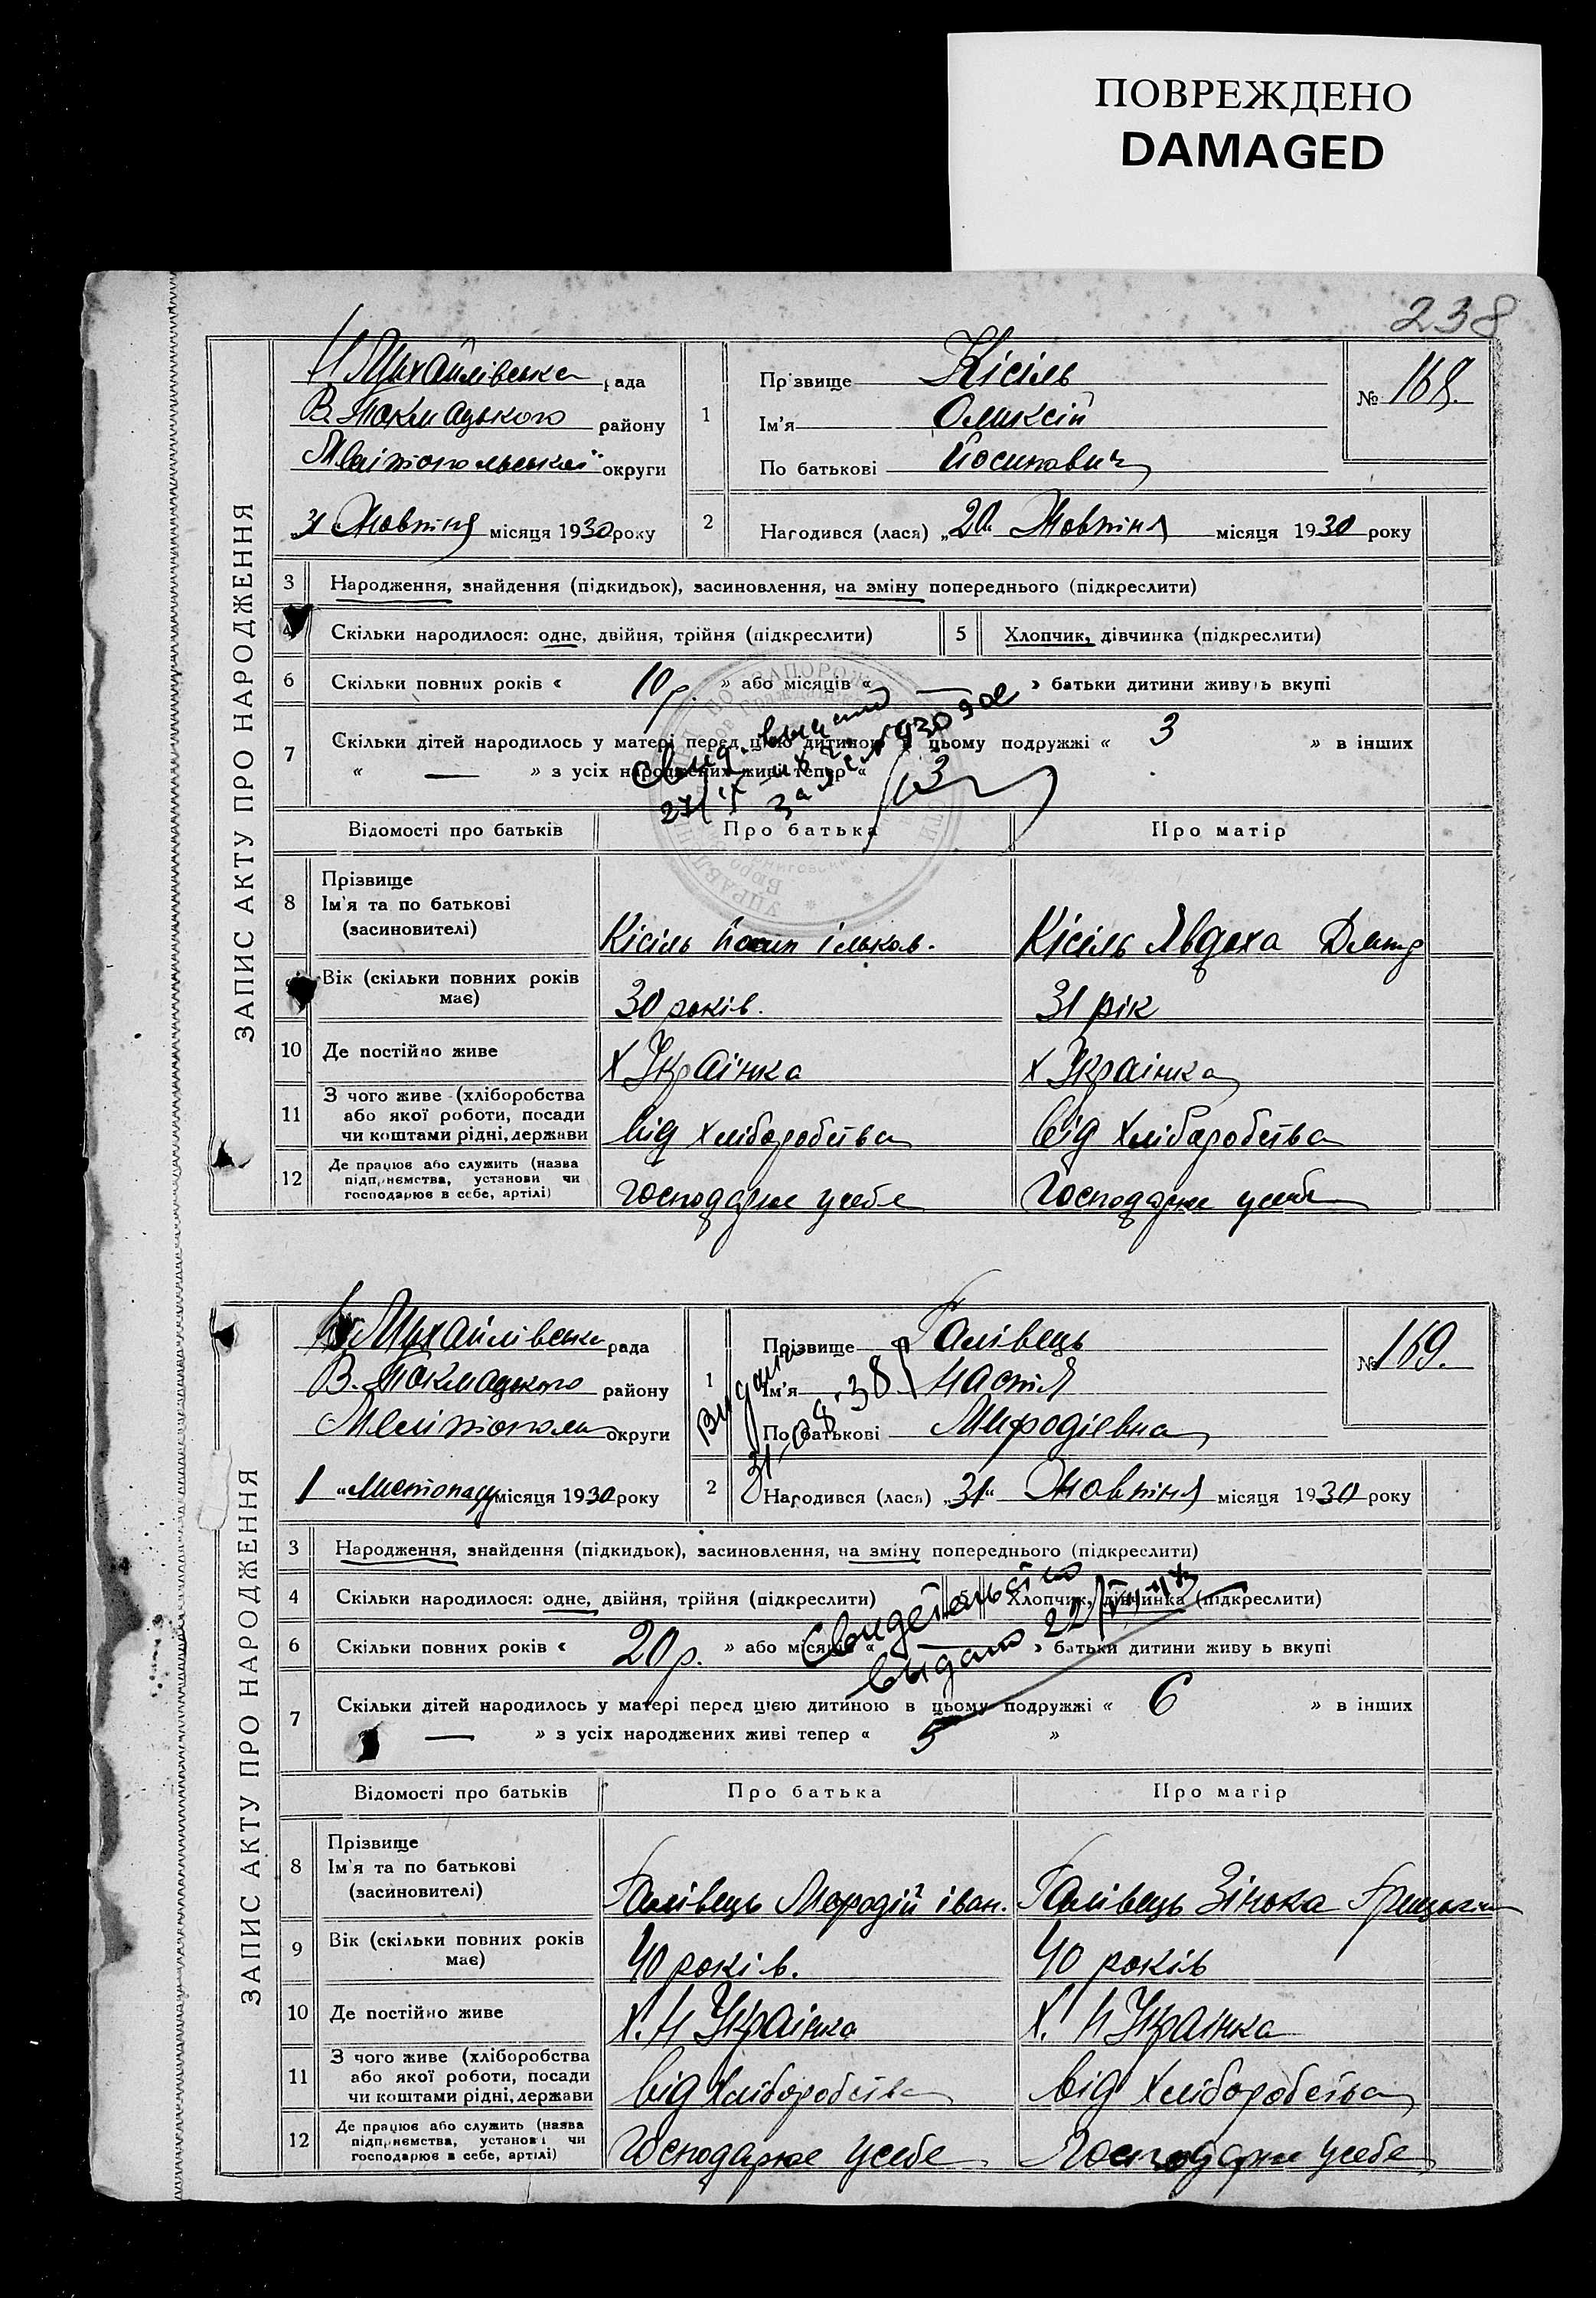 ПОВРЕЖДЕНО
DAMAGED
238
ЗАПИС АКТУ ПРО НАРОДЖЕННЯ
Н Михайлівська рада
В. Токмацького району
Мелітопольської округи
31 Жовтня місяця 1930 року
1
Прізвище Кісіль
Ім'я Оликсій
По батькові Йосипович
№ 168.
2
Народився (лася) „20" Жовтня місяця 1930 року
3 Народження, знайдення (підкидьок), засиновлення, на зміну попереднього (підкреслити)
4 Скільки народилося: одне, двійня, трійня (підкреслити)
5 Хлопчик, дівчинка (підкреслити)
6 Скільки повних років « 10 р. » або місяців « — » батьки дитини живуть вкупі
7 Скільки дітей народилось у матері перед цією дитиною в цьому подружжі « 3 » в інших
« — » з усіх народжених живі тепер « 3
Відомості про батьків Про батька Про матір
8 Прізвище
Ім'я та по батькові
(засиновителі)
Кісіль Йосип Ільков. Кісіль Явдоха Дмитр
9 Вік (скільки повних років має)
30 років. 31 рік
10 Де постійно живе
х Українка х Українка
11 З чого живе (хліборобства
або якої роботи, посади
чи коштами рідні, держави
від хліборобства від хліборобства
12 Де працює або служить (назва
підприємства, установи чи
господарює в себе, артілі)
господарює у себе господарює у себе
ЗАПИС АКТУ ПРО НАРОДЖЕННЯ
Н Михайлівська рада
В. Токмацького району
Мелітополь округи
1 „Листопаду місяця 1930 року
1
Прізвище Галівець
Ім'я Настя
По батькові Мифодіевна
№ 169.
Видан
31.08.38 р
2
Народився (лася) „31" Жовтня місяця 1930 року
3 Народження, знайдення (підкидьок), засиновлення, на зміну попереднього (підкреслити)
4 Скільки народилося: одне, двійня, трійня (підкреслити)
5 Хлопчик, дівчинка (підкреслити)
Свидетельство
выдано 22/VII
6 Скільки повних років « 20 р. » або місяців « — » батьки дитини живуть вкупі
7 Скільки дітей народилось у матері перед цією дитиною в цьому подружжі « 6 » в інших
« — » з усіх народжених живі тепер « 5 »
Відомості про батьків Про батька Про матір
8 Прізвище
Ім'я та по батькові
(засиновителі)
Галівець Мефодій Іван. Галівець Зінька
9 Вік (скільки повних років має)
40 років. 40 років
10 Де постійно живе
х. Н Українка х. Н Українка
11 З чого живе (хліборобства
або якої роботи, посади
чи коштами рідні, держави
від хліборобства від хліборобства
12 Де працює або служить (назва
підприємства, установи чи
господарює в себе, артілі)
господарює у себе господарює у себе